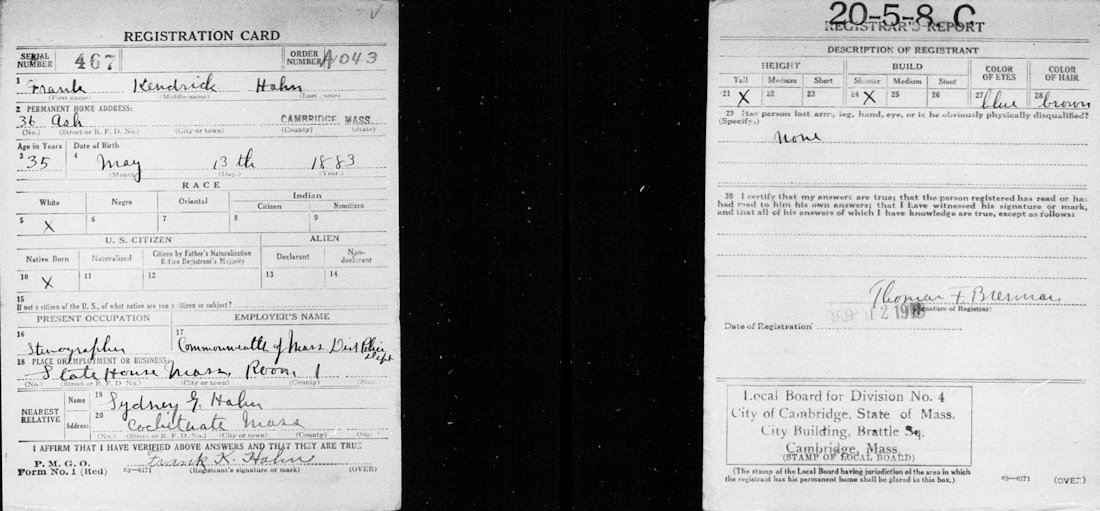 REGISTRATION CARD
SERIAL NUMBER 467 ORDER NUMBER A043
1 Frank Kendrick Hahn
(First name) (Middle name) (Last name)
2 PERMANENT HOME ADDRESS:
36 Ash CAMBRIDGE MASS.
(No.) (Street or R. F. D. No.) (City or town) (County) (State)
Age in Years Date of Birth
3 35 4 May 13th 1883
(Month.) (Day.) (Year.)
RACE
White Negro Oriental Indian
Citizen Noncitizen
5 X 6 7 8 9
U. S. CITIZEN ALIEN
Native Born Naturalized Citizen by Father's Naturalization Before Registrant's Majority Declarant Non-declarant
10 X 11 12 13 14
15
If not a citizen of the U. S., of what nation are you a citizen or subject?
PRESENT OCCUPATION EMPLOYER'S NAME
16 Stenographer 17 Commonwealth of Mass Dist Police Dept
18 PLACE OF EMPLOYMENT OR BUSINESS:
State House Mass. Room 1
(No.) (Street or R. F. D. No.) (City or town) (County) (State)
NEAREST RELATIVE Name 19 Sydney G. Hahn
Address 20 Cochituate Mass
(No.) (Street or R. F. D. No.) (City or town) (County) (State)
I AFFIRM THAT I HAVE VERIFIED ABOVE ANSWERS AND THAT THEY ARE TRUE
P. M. G. O.
Form No. 1 (Red) 03—6171 Frank K. Hahn
(Registrant's signature or mark) (OVER)
20-5-8. C
REGISTRAR'S REPORT
DESCRIPTION OF REGISTRANT
HEIGHT BUILD COLOR OF EYES COLOR OF HAIR
Tall Medium Short Slender Medium Stout
21 X 22 23 24 X 25 26 27 blue 28 brown
29 Has person lost arm, leg, hand, eye, or is he obviously physically disqualified?
(Specify.)
None
30 I certify that my answers are true; that the person registered has read or has
had read to him his own answers; that I have witnessed his signature or mark,
and that all of his answers of which I have knowledge are true, except as follows:
Thomas F. Brennan
(Signature of Registrar)
Date of Registration 12 1918
Local Board for Division No. 4
City of Cambridge, State of Mass.
City Building, Brattle Sq.
Cambridge, Mass.
(STAMP OF LOCAL BOARD)
(The stamp of the Local Board having jurisdiction of the area in which
the registrant has his permanent home shall be placed in this box.)
03—6171 (OVER)